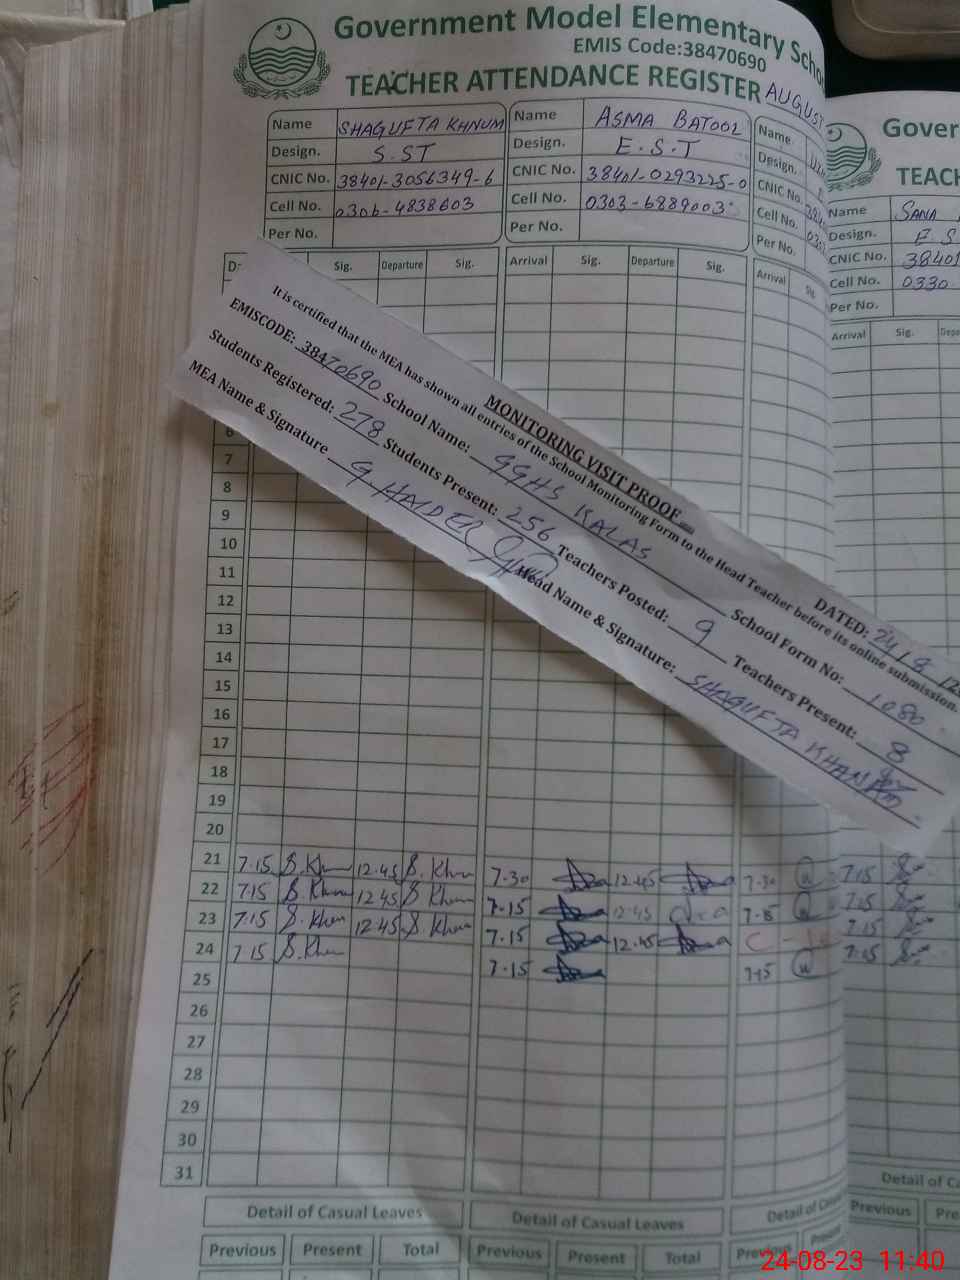 Government Model Elementary Scho
EMIS Code:38470690
TEACHER ATTENDANCE REGISTER AUGUST
Name SHAGUFTA KHNUM
Design. S.ST
CNIC No. 38401-3056349-6
Cell No. 0306-4838603
Per No.
Name ASMA BATOOL
Design. E.S.T
CNIC No. 38401-0293225-0
Cell No. 0303-6889003
Per No.
Name
Design.
CNIC No.
Cell No.
Per No.
Gover
TEACH
Name SANA
Design. E.S
CNIC No. 38401
Cell No. 0330
Per No.
Sig. Departure Sig. Arrival Sig. Departure Sig. Arrival Sig.
Arrival Sig. Depa
MONITORING VISIT PROOF
DATED: 24/8/
It is certified that the MEA has shown all entries of the School Monitoring Form to the Head Teacher before its online submission.
EMISCODE: 38470690 School Name: GGHS KALAS School Form No: 1080
Students Registered: 278 Students Present: 256 Teachers Posted: 9 Teachers Present: 8
MEA Name & Signature G HAIDER Head Name & Signature: SHAGUFTA KHANAM
6
7
8
9
10
11
12
13
14
15
16
17
18
19
20
21 7.15 S.Khum 12.45 S.Khum 7.30 12.45 7.30 7.15
22 7.15 S.Khum 12.45 S.Khum 7.15 12.45 7.15 7.15
23 7.15 S.Khum 12.45 S.Khum 7.15 12.45 C 7.15
24 7.15 S.Khum 7.15 7.15 7.15
25
26
27
28
29
30
31
Detail of Casual Leaves Detail of Casual Leaves Detail of Casual Detail of Ca
Previous Present Total Previous Present Total Previous Present Previous Pre
24-08-23 11:40